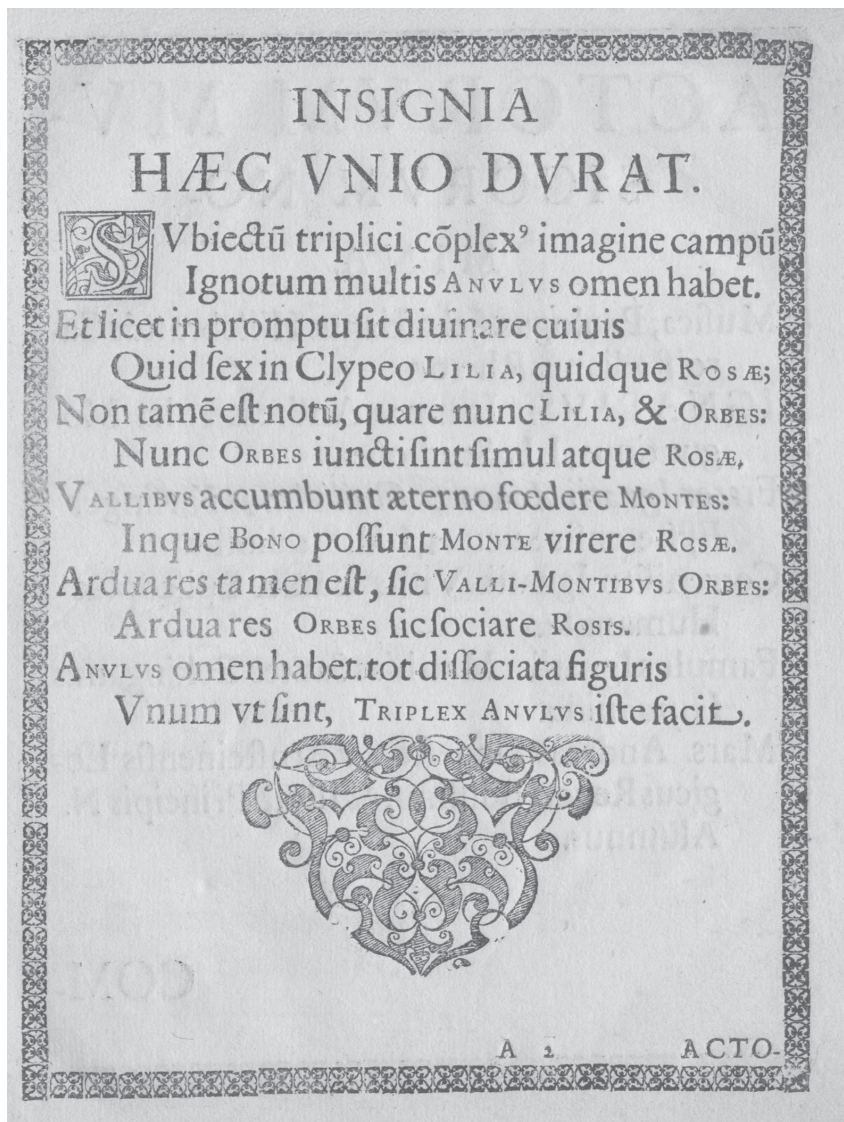 INSIGNIA
HÆC VNIO DVRAT.
SVbiectū triplici cōplexꝰ imagine campū
Ignotum multis ANVLVS omen habet.
Et licet in promptu ſit diuinare cuiuis
Quid ſex in Clypeo LILIA, quidque ROSÆ;
Non tamē eſt notū, quare nunc LILIA, & ORBES:
Nunc ORBES iuncti ſint ſimul atque ROSÆ.
VALLIBVS accumbunt æterno fœdere MONTES:
Inque BONO poſſunt MONTE virere ROSÆ.
Ardua res tamen eſt, ſic VALLI-MONTIBVS ORBES:
Ardua res ORBES ſic ſociare ROSIS.
ANVLVS omen habet. tot diſſociata figuris
Vnum vt ſint, TRIPLEX ANVLVS iſte facit.
A 2 ACTO-